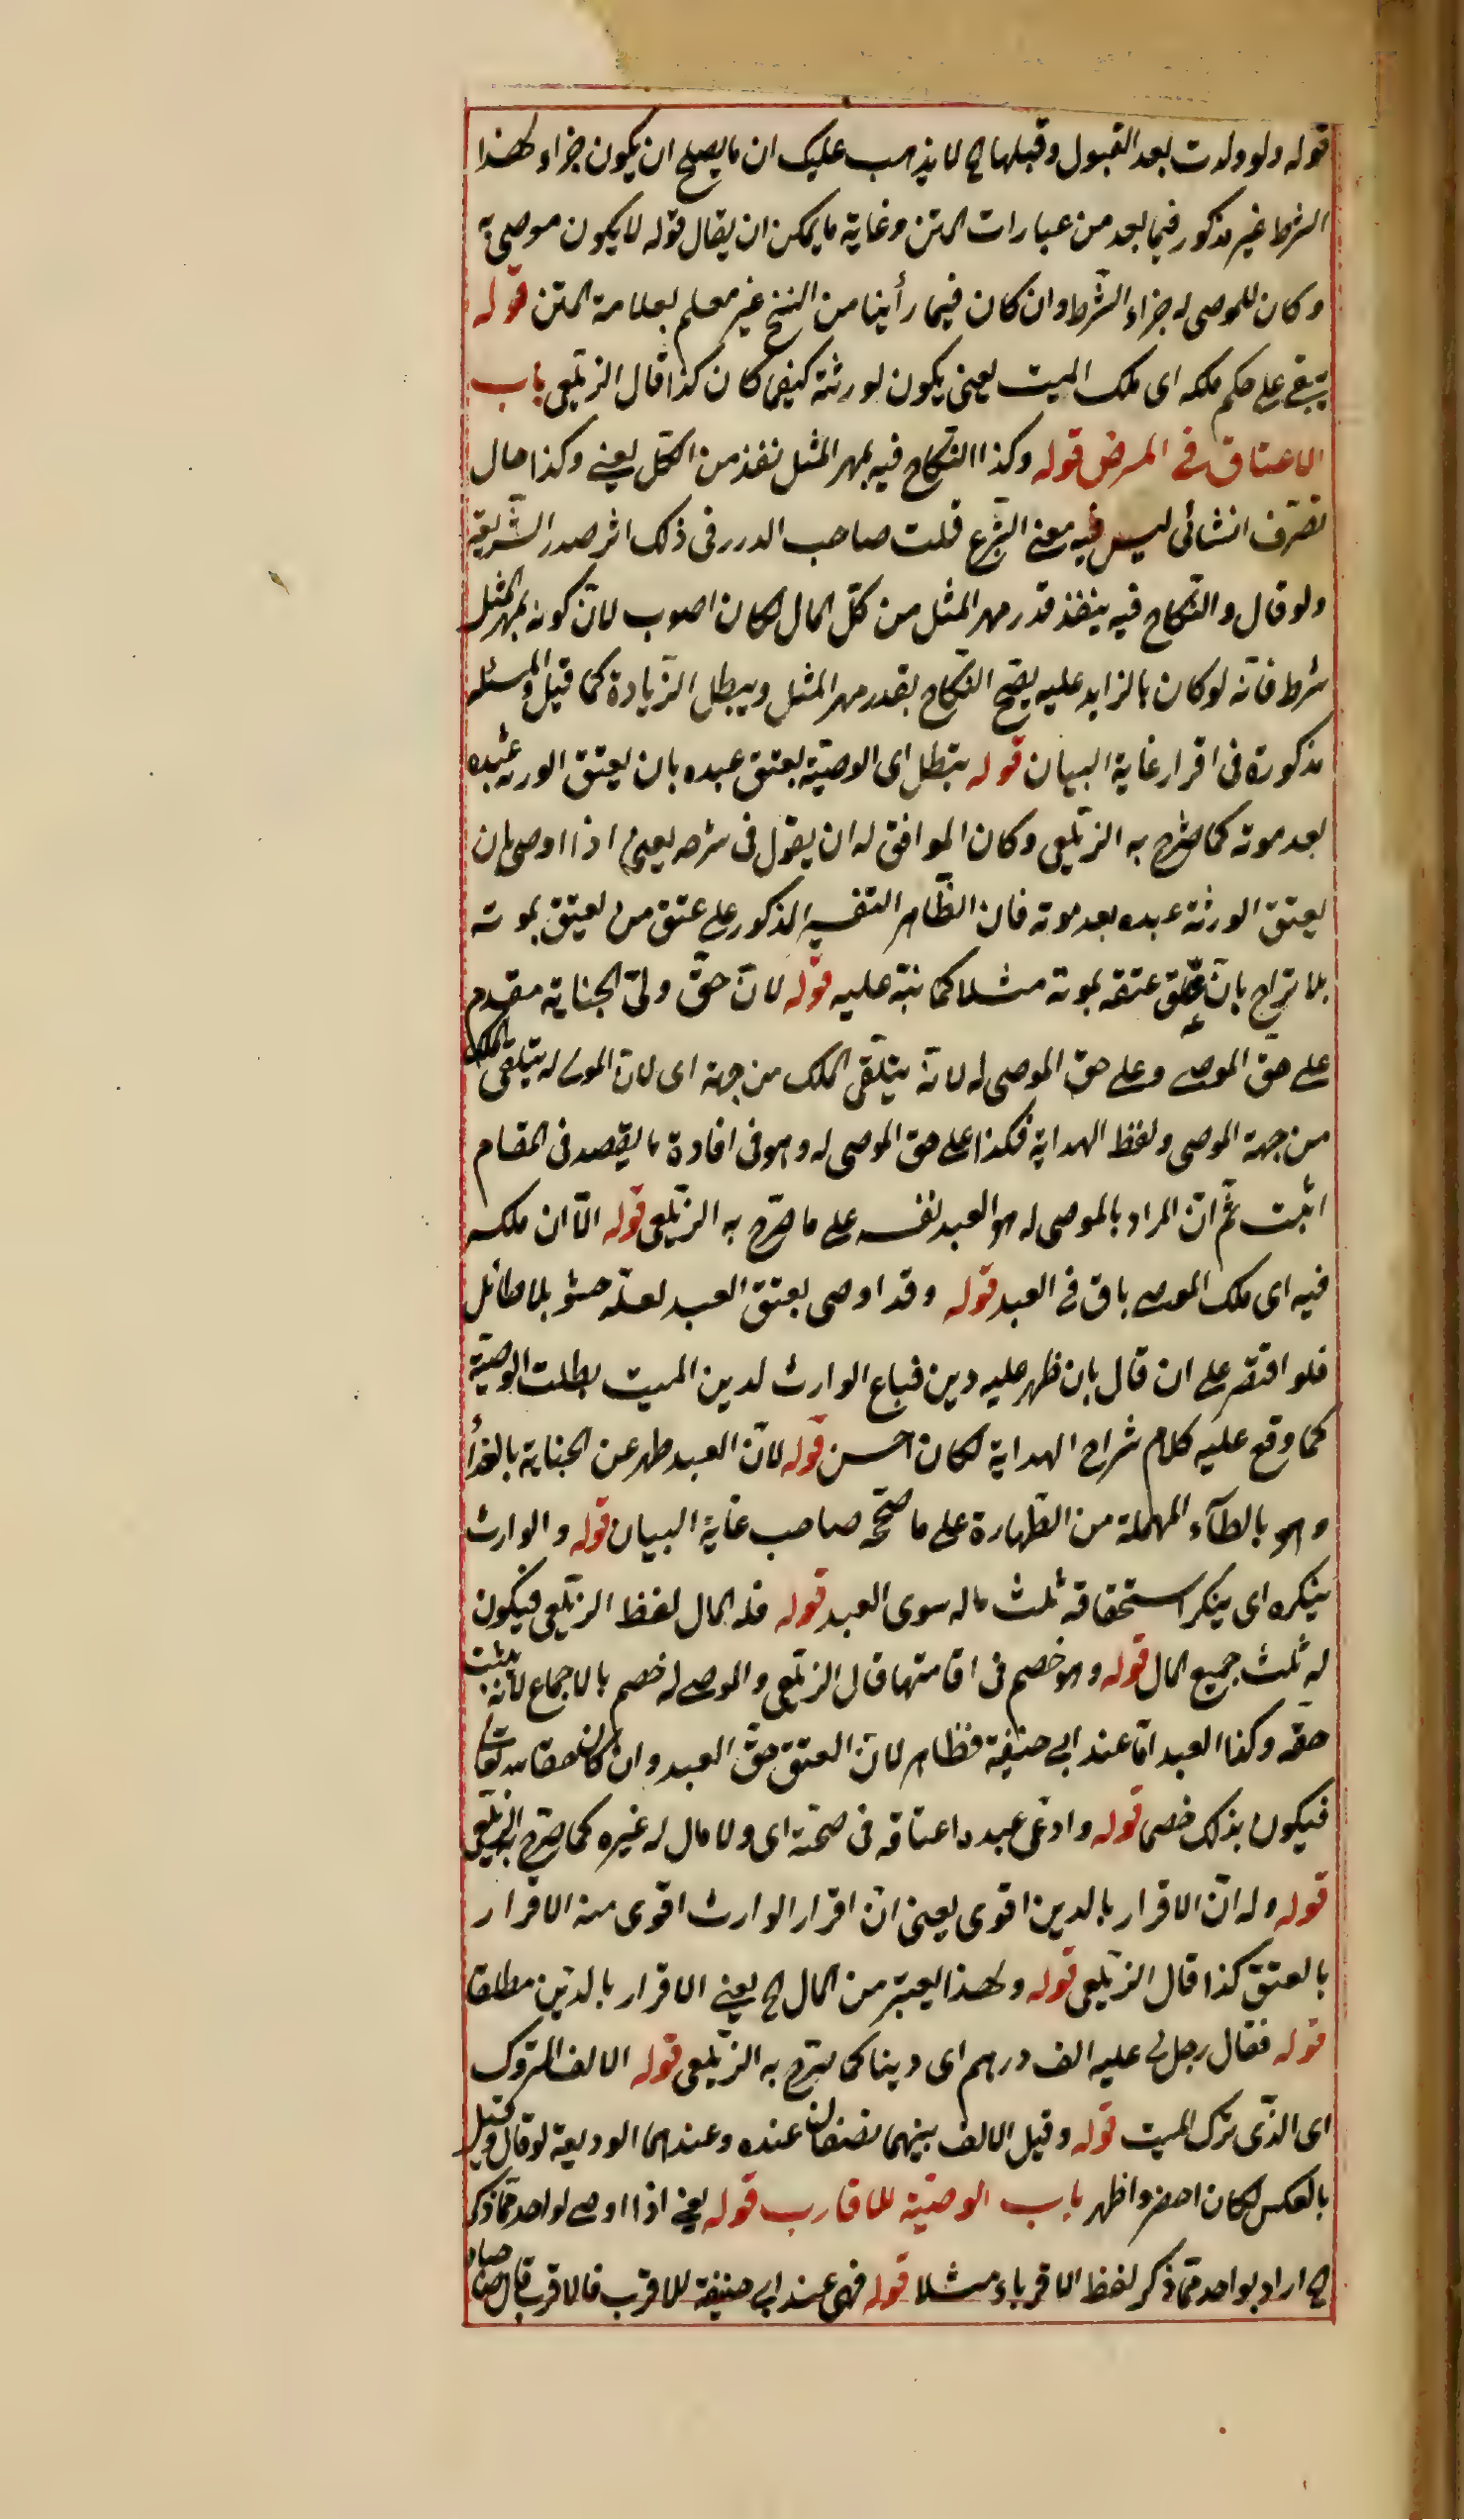 قوله ولو ولدت بعد القبول وقبلها الخ لا يذهب عليك ان ما يصلح ان يكون جزاء لهذا
الشرط غير مذكور فيما بعد من عبارات المتن وغاية ما يمكن ان يقال قوله لا يكون موصى به
وكان للموصى له جزاء الشرط وان كان فيما رأينا من النسخ غير معلم بعلامة المتن قوله
يبقى على حكم ملكه اى ملك الميت يعنى يكون لورثته كيفما كان كذا قال الزيلعى باب
الاعتاق فى المرض قوله وكذا النكاح فيه بمهر المثل نفذ من الكل يعنى وكذا حال
تصرف انشائى ليس فيه معنى التبرع قلت صاحب الدرر فى ذلك اثر صدر الشريعة
ولو قال والنكاح فيه ينفذ قدر مهر المثل من كل المال لكان اصوب لان كونه بمهر المثل
شرط فانه لو كان بالزايد عليه يصح النكاح بقدر مهر المثل ويبطل الزيادة كما قيل والمسئلة
مذكورة فى اقرار غاية البيان قوله تبطل اى الوصية بعتق عبده بان يعتق الورثة عبده
بعد موته كما صرح به الزيلعى وكان الموافق له ان يقول فى شرحه يعنى اذا اوصى بان
يعتق الورثة عبده بعد موته فان الظاهر التفسير المذكور على عتق من يعتق بموته
بلا تراخ بان علق عتقه بموته مثلا كما نبه عليه قوله لان حق ولى الجناية مقدم
على حق الموصى وعلى حق الموصى له لانه يتلقى الملك من جهته اى لان الموصى له يتلقى الملك
من جهة الموصى ولفظ الهداية فكذا على حق الموصى له وهو فى افادة ما يقصد فى المقام
اثبت ثم ان المراد بالموصى له هو العبد نفسه على ما صرح به الزيلعى قوله الا ان ملكه
فيه اى ملك الموصى باق فى العبد قوله وقد اوصى بعتق العبد لعله حشو بلا طائل
فلو اقتصر على ان قال بان ظهر عليه دين فباع الوارث لدين الميت بطلت الوصية
كما وقع عليه كلام شراح الهداية لكان احسن قوله لان العبد طهر عن الجناية بالفدأ
وهو بالطاء المهملة من الطهارة على ما صححه صاحب غاية البيان قوله والوارث
ينكره اى ينكر استحقاقه ثلث ماله سوى العبد قوله فله المال لفظ الزيلعى فيكون
له ثلث جميع المال قوله وهو خصم فى اقامتها قال الزيلعى والموصى له خصم بالاجماع لانه يثبت
حقه وكذا العبد اما عند ابى حنيفة فظاهر لان العتق حق العبد وان كان حقا لله تعالى
فيكون بذلك خصما قوله وادعى عبده اعتاقه فى صحته اى ولا مال له غيره كما صرح به الزيلعى
قوله وله ان الاقرار بالدين اقوى يعنى ان اقرار الوارث اقوى منه الاقرار
بالعتق كذا قال الزيلعى قوله ولهذا يعتبر من المال الخ يعنى الاقرار بالدين مطلقا
قوله فقال رجل لى عليه الف درهم اى دينا كما صرح به الزيلعى قوله الالف المتروك
اى الذى ترك الميت قوله وقيل الالف بينهما نصفان عنده وعندهما الوديعة لو قال وقيل
بالعكس لكان اخصر واظهر باب الوصية للاقارب قوله يعنى اذا اوصى لواحد مما ذكر
الخ اراد بواحد مما ذكر لفظ الاقرباء مثلا قوله فهى عند ابى حنيفة للاقرب فالاقرب قال صاحب